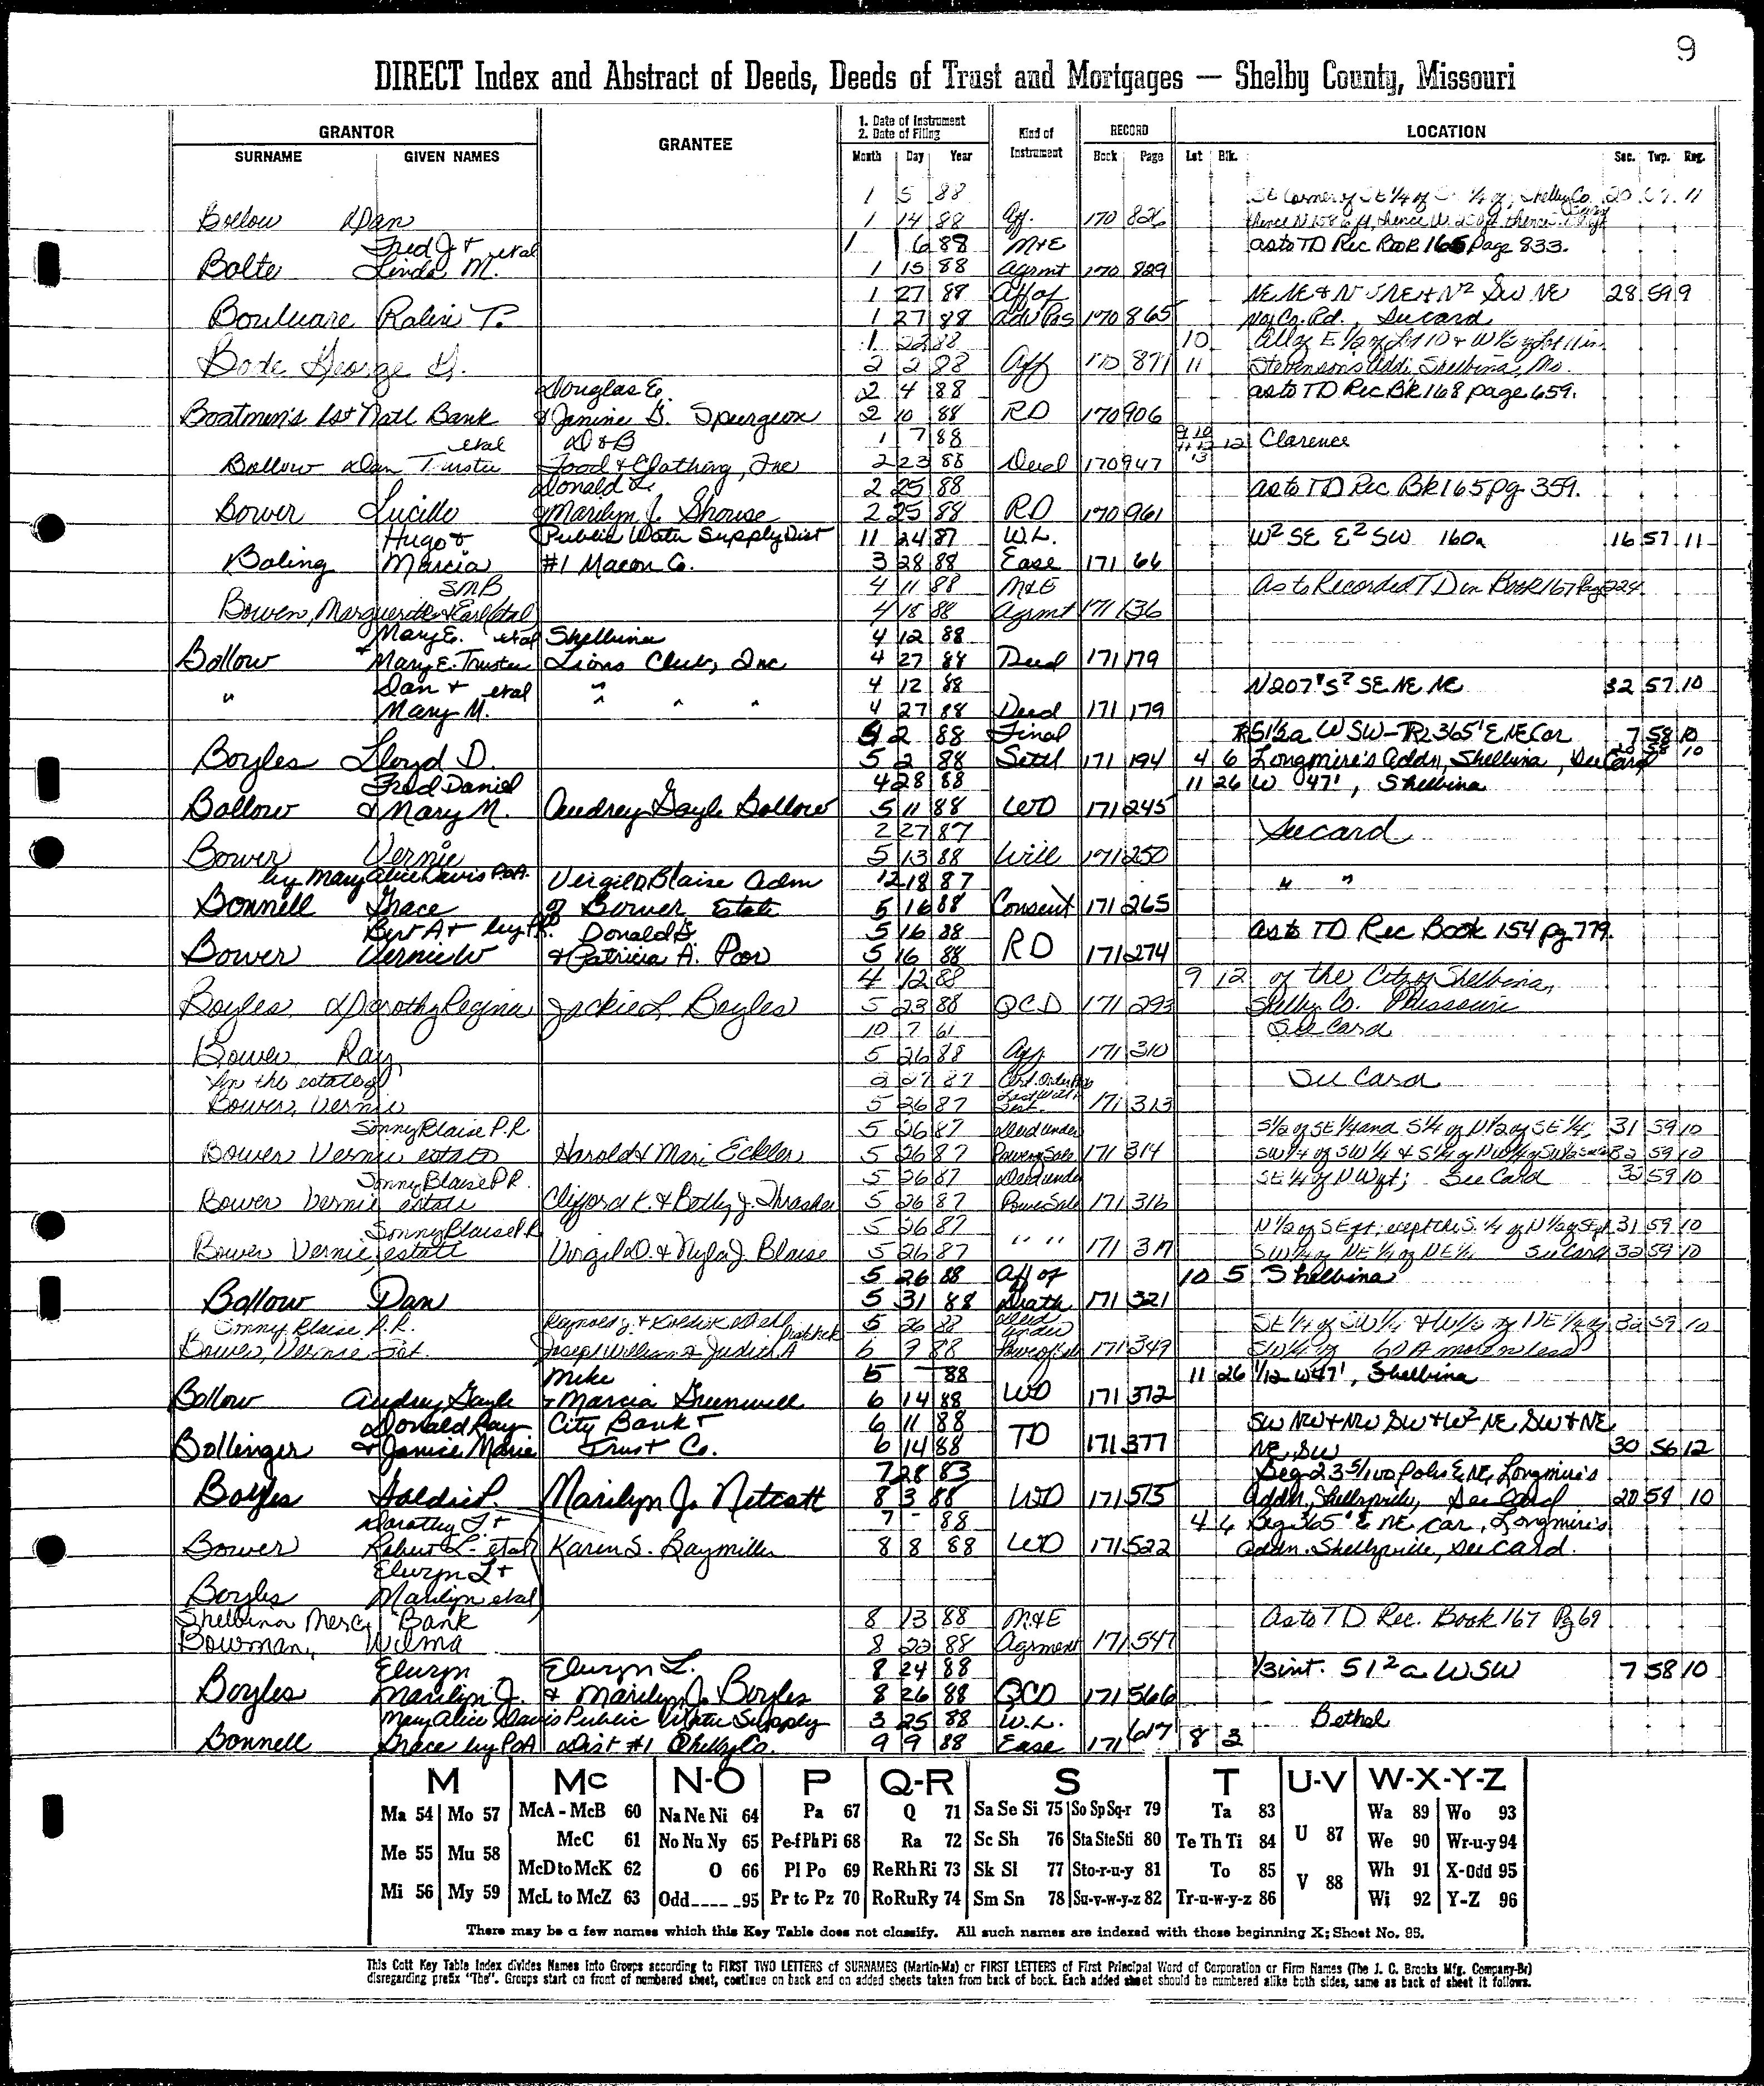 9
DIRECT Index and Abstract of Deeds, Deeds of Trust and Mortgages — Shelby County, Missouri
GRANTOR
SURNAME GIVEN NAMES
GRANTEE
1. Date of Instrument
2. Date of Filing
Month Day Year
Kind of Instrument
RECORD
Book Page
LOCATION
Lot Blk. Sec. Twp. Rng.
1 5 88 SE Corner of SE 1/4 of 1/4 of, Shelby Co. 20 57 11
Bollow Dan 1 14 88 Aff. 170 826
Fred J. + etal 1 6 88 M+E as to TD Rec Book 165 Page 833.
Bolte Linda M. 1 15 88 Agrmt 170 829
1 27 88 Aff of 28 59 9
Boulware Robin T. 1 27 88 Adv Pos 170 865 No. Co. Rd., See card
1 22 88 10 All of E 1/2 of Lot 10 + W 1/2 of Lot 11 in
Bode George H. 2 2 88 Aff 170 871 11 Stevenson's Addi, Shelbina, Mo.
Douglas E. 2 4 88 as to TD Rec Bk 168 page 659.
Boatmen's 1st Natl Bank & Janine G. Spurgeon 2 10 88 RD 170 906
etal D & B 1 7 88 9 10 11 12 13 12 Clarence
Bollow Dan Trustee Food & Clothing, Inc 2 23 88 Deed 170 947
Donald L. 2 25 88 as to TD Rec Bk 165 pg 359.
Bower Lucille & Marilyn J. Shouse 2 25 88 RD 170 961
Hugo & Public Water Supply Dist 11 24 87 W.L. W2 SE E2 SW 160a 16 57 11
Boling Marcia #1 Macon Co. 3 28 88 Ease 171 66
SMB 4 11 88 M&E As to Recorded TD in Book 167 Page 224
Bowen, Marguerite & Earl etal 4 18 88 Agrmt 171 136
Mary E. etal Shelbina 4 12 88
Bollow & Mary E. Trustee Lions Club, Inc 4 27 88 Deed 171 179
Dan + etal " 4 12 88 N207' S2 SE NE NE 32 57 10
" Mary M. " " " 4 27 88 Deed 171 179
5 2 88 Final 51 1/2a W SW - 365' E NE Cor 7 58 10
Boyles Lloyd D. 5 2 88 Settl 171 194 4 6 Longmire's Addn, Shelbina, See Card 20 58 10
Fred Daniel 4 28 88 11 26 W 47', Shelbina
Bollow & Mary M. Audrey Gayle Bollow 5 11 88 WD 171 245
2 27 87 See card
Bower Vernie 5 13 88 Will 171 250
by Mary Alice Davis POA. Virgil D. Blaise Adm 12 18 87 " "
Bonnell Grace of Bower Estate 5 16 88 Consent 171 265
Bert A + by PR. Donald G. 5 16 88 as to TD Rec Book 154 pg 779.
Bower Vernie W & Patricia A. Poor 5 16 88 RD 171 274
4 12 88 9 12 of the City of Shelbina,
Boyles, & Dorothy Regina Jackie L Boyles 5 23 88 QCD 171 293 Shelby Co. Missouri
10 7 61 See Card
Bower, Ray 5 26 88 Aff 171 310
In the estate of 2 27 87 See Card
Bower, Vernie 5 26 87 171 313
Sonny Blaise P.R. 5 26 87 Deed under S 1/2 of SE 1/4 and S 1/4 of N 1/2 of SE 1/4, 31 59 10
Bower Vernie estate Harold & Mari Eckler 5 26 87 Power of Sale 171 314 32 59 10
Sonny Blaise PR. 5 26 87 Deed under SE 1/4 of NW qt; See Card 32 59 10
Bower Vernie estate Clifford K. & Betty J. Thrasher 5 26 87 Power Sale 171 316
Sonny Blaise P.R 5 26 87 N 1/2 of SE qt, except the S. 1/4 of N 1/2 of SE qt 31 59 10
Bower Vernie, estate Virgil D. & Nyla J. Blaise 5 26 87 " " 171 317 SW 1/4 of NE 1/4 of NE 1/4 See Card 32 59 10
5 26 88 Aff of 10 5 Shelbina
Bollow Dan 5 31 88 Death 171 321
Sonny Blaise P.R. 5 26 88 Deed under 32 59 10
Bower, Vernie Est. Joseph William & Judith A 6 7 88 Power of Sale 171 349 60 A more or less
Mike 5 - 88 11 26 1/12 W47', Shelbina
Bollow Audrey Gayle + Marcia Greenwell 6 14 88 WD 171 372
Donald Ray City Bank + 6 11 88 SW NW + NW SW + W2 NE SW + NE
Bollinger & Janice Marie Trust Co. 6 14 88 TD 171 377 NE, SW 30 56 12
7 28 83 Beg 23 5/100 Poles E NE, Longmire's
Boyles Goldie P. Marilyn J. Netcott 8 3 88 WD 171 515 Addn, Shelbyville, See Card 20 59 10
Dorothy L. + 7 - 88 4 6 Beg 365' E NE Cor, Longmire's
Bower Robert L - etal Karen S. Baymiller 8 8 88 WD 171 522 Addn. Shelbyville, See card.
Elwyn L +
Boyles Marilyn etal
Shelbina Merc, Bank 8 13 88 M&E As to TD Rec. Book 167 Pg 69
Bowman, Wilma 8 22 88 Agrment 171 547
Elwyn Elwyn L. 8 24 88 1/3 int. 51 2 a W SW 7 58 10
Boyles Marilyn J. & Marilyn J. Boyles 8 26 88 QCD 171 566
Mary Alice Davis Public Water Supply 3 25 88 W.L. Bethel
Bonnell Grace by POA Dist #1 Shelby Co. 9 9 88 Ease 171 617 8 3
M Mc N-O P Q-R S T U-V W-X-Y-Z
Ma 54 Mo 57 McA - McB 60 Na Ne Ni 64 Pa 67 Q 71 Sa Se Si 75 So Sp Sq-r 79 Ta 83 U 87 Wa 89 Wo 93
Me 55 Mu 58 McC 61 No Nu Ny 65 Pe-f Ph Pi 68 Ra 72 Sc Sh 76 Sta Ste Sti 80 Te Th Ti 84 We 90 Wr-u-y 94
McD to McK 62 O 66 Pl Po 69 Re Rh Ri 73 Sk Sl 77 Sto-r-u-y 81 To 85 V 88 Wh 91 X-Odd 95
Mi 56 My 59 McL to McZ 63 Odd_____95 Pr to Pz 70 Ro Ru Ry 74 Sm Sn 78 Su-v-w-y-z 82 Tr-u-w-y-z 86 Wi 92 Y-Z 96
There may be a few names which this Key Table does not classify. All such names are indexed with those beginning X; Sheet No. 95.
This Cott Key Table Index divides Names into Groups according to FIRST TWO LETTERS of SURNAMES (Martin-Ma) or FIRST LETTERS of First Principal Word of Corporation or Firm Names (The J. C. Brooks Mfg. Company-Br)
disregarding prefix "The". Groups start on front of numbered sheet, continue on back and on added sheets taken from back of book. Each added sheet should be numbered alike both sides, same as back of sheet it follows.